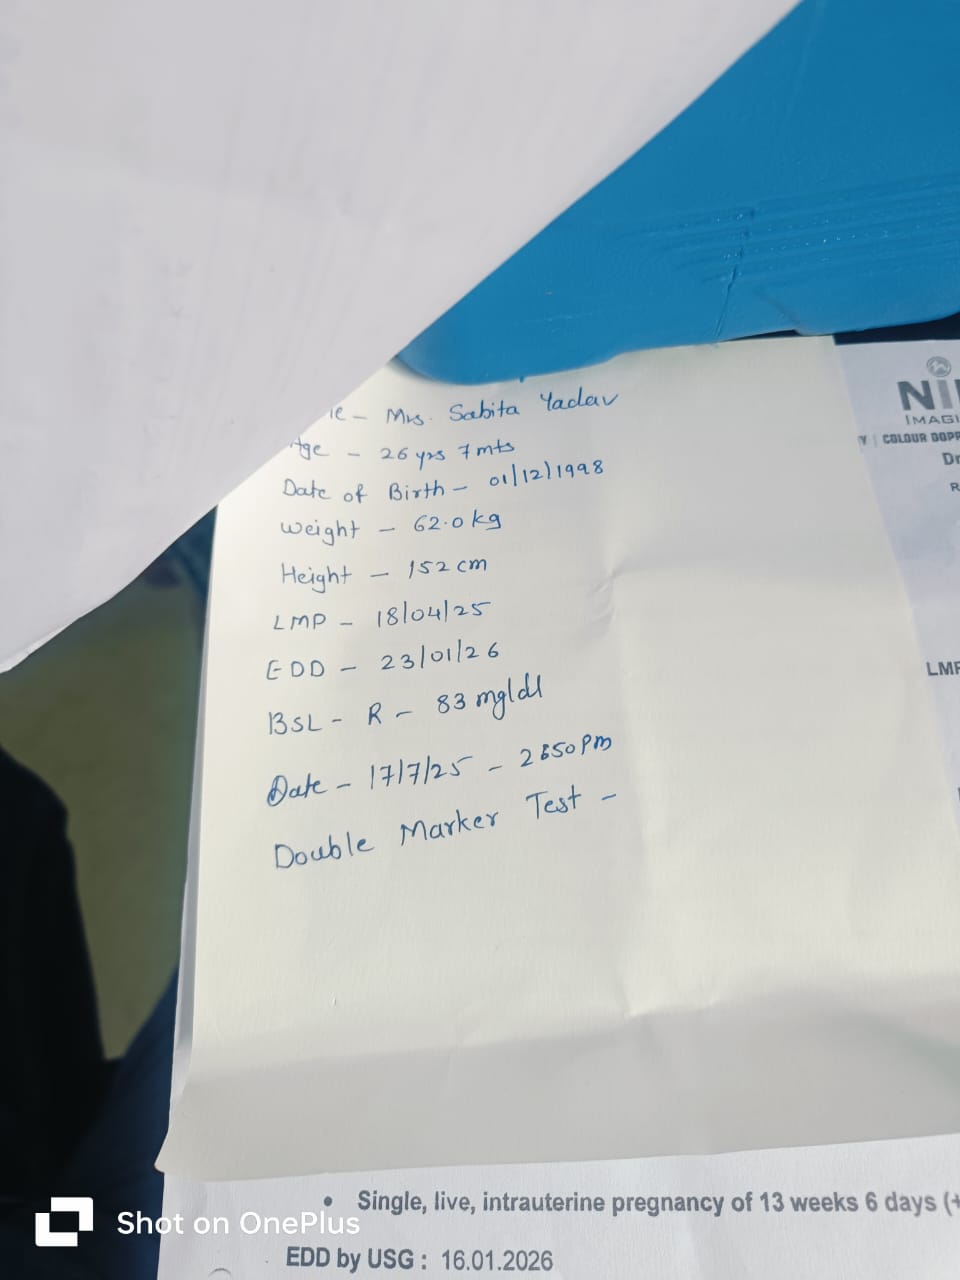 Mrs. Sabita Yadav
Age - 26 yrs 7 mts
Date of Birth - 01/12/1998
Weight - 62.0 kg
Height - 152 cm
LMP - 18/04/25
EDD - 23/01/26
BSL - R - 83 mg/dl
Date - 17/7/25 -
Double Marker Test -
NI
IMAGI
Y | COLOUR DOPP
Dr
R
LMP
• Single, live, intrauterine pregnancy of 13 weeks 6 days (+
EDD by USG : 16.01.2026
Shot on OnePlus